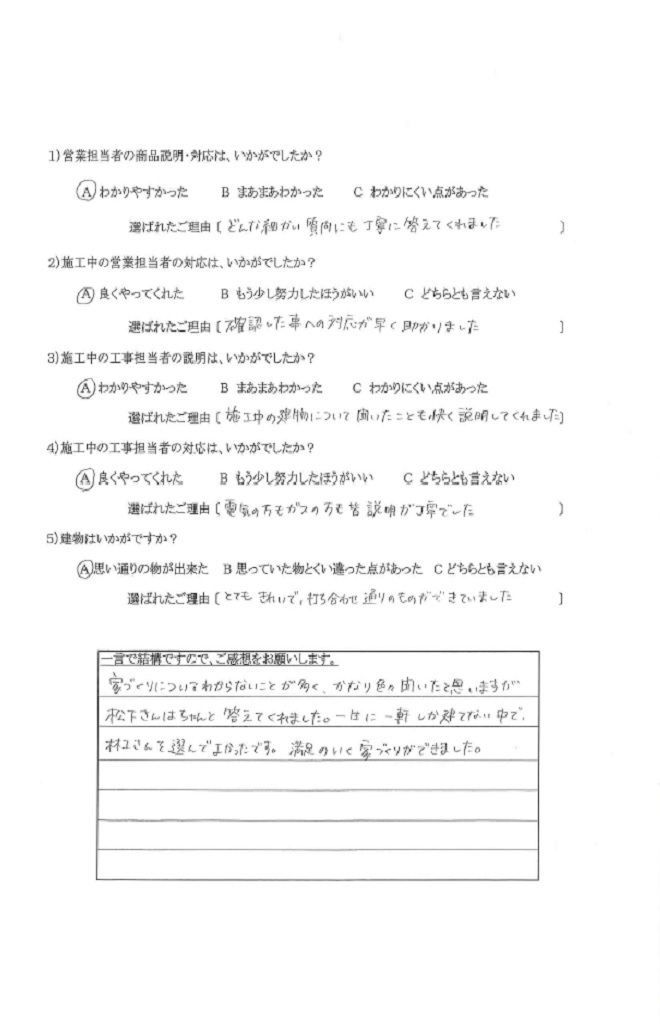 1)営業担当者の商品説明・対応は、いかがでしたか？
Ⓐ わかりやすかった B まあまあわかった C わかりにくい点があった
選ばれたご理由〔 どんな細かい質問にも丁寧に答えてくれました 〕
2)施工中の営業担当者の対応は、いかがでしたか？
Ⓐ 良くやってくれた B もう少し努力したほうがいい C どちらとも言えない
選ばれたご理由〔 確認した事への対応が早く助かりました 〕
3)施工中の工事担当者の説明は、いかがでしたか？
Ⓐ わかりやすかった B まあまあわかった C わかりにくい点があった
選ばれたご理由〔 施工中の建物について聞いたことも快く説明してくれました〕
4)施工中の工事担当者の対応は、いかがでしたか？
Ⓐ 良くやってくれた B もう少し努力したほうがいい C どちらとも言えない
選ばれたご理由〔 電気の方もガスの方も皆説明が丁寧でした 〕
5)建物はいかがですか？
Ⓐ思い通りの物が出来た B 思っていた物とくい違った点があった C どちらとも言えない
選ばれたご理由〔 とてもきれいで、打ち合わせ通りのものができていました 〕
一言で結構ですので、ご感想をお願いします。
家づくりについてわからないことが多く、かなり色々聞いたと思いますが
松下さんはちゃんと答えてくれました。一生に一軒しか建てない中で、
さんを選んでよかったです。満足のいく家づくりができました。